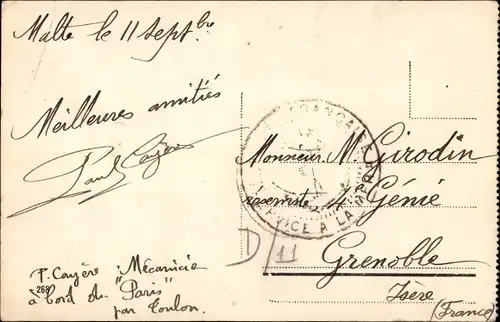 Malte le 11 Septbre
Meilleures amitiés
Paul Cayère
P. Cayère Mécanicien
à bord du "Paris"
par Toulon.
268
FRANÇAI
SERVICE A LA MER
Monsieur M. Girodin
reserviste 4e Génie
Grenoble
Isère
(France)
D/11